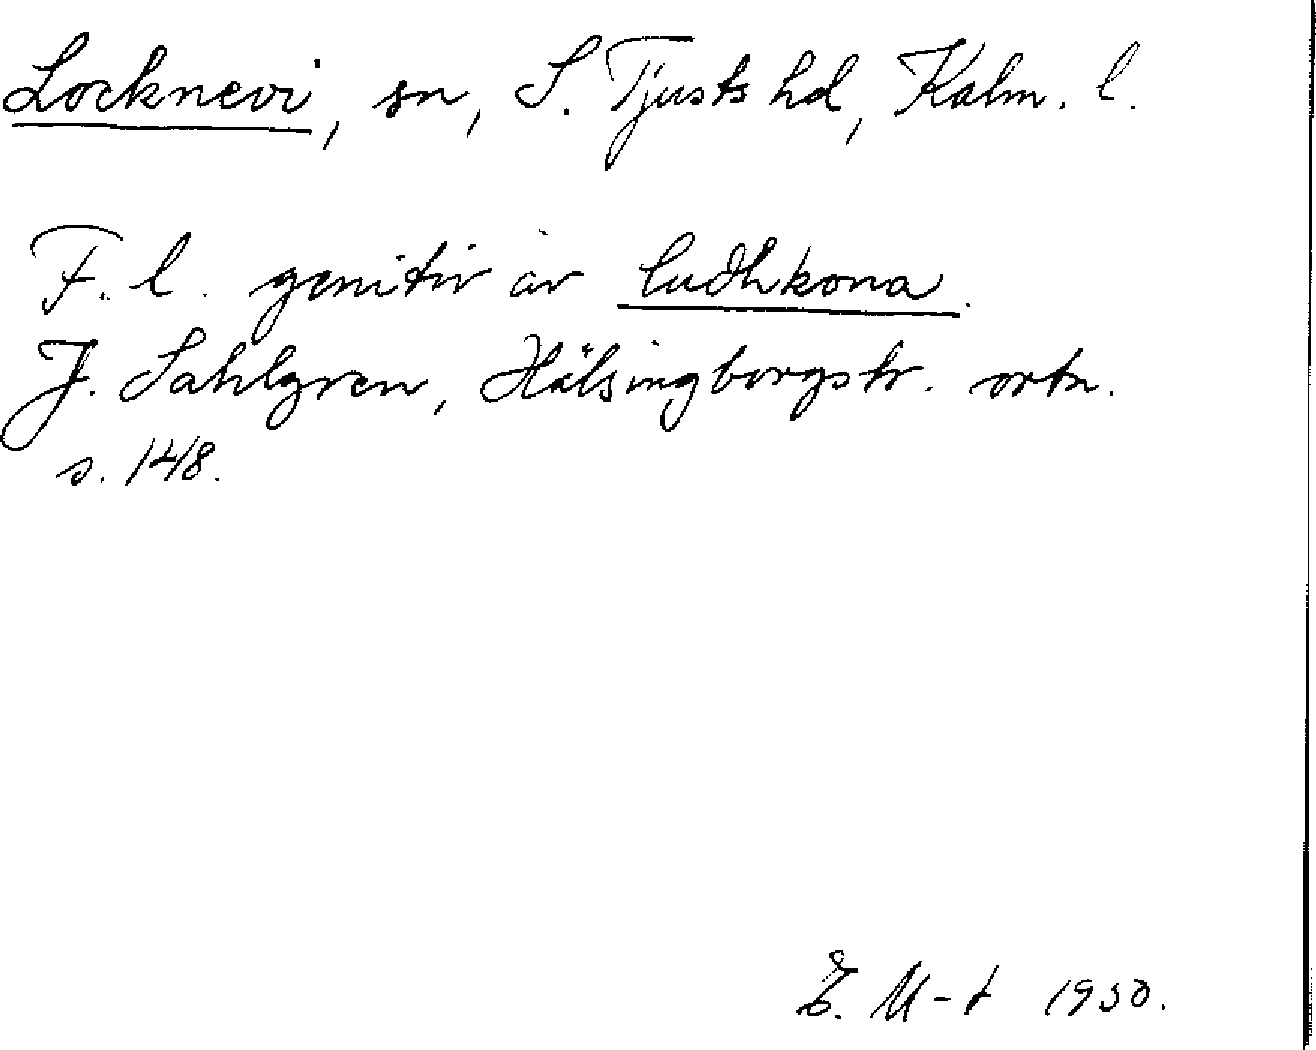 Locknevi, sn, S. Tjusts hd, Kalm. l.
F. l. genitiv av ludhkona.
J. Sahlgren, Hälsingborgstr. ortn.
s. 148.
E. M-t 1930.